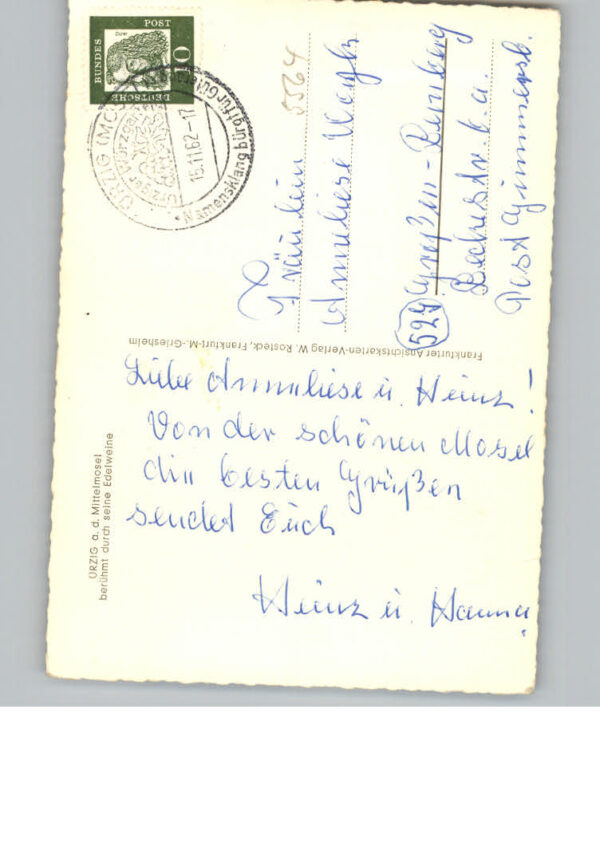 Liebe Annneliese u. Heinz!
Von der schönen Mosel
die besten Grüßen
sendet Euch
Heinz u. Hanna
ÜRZIG a. d. Mittelmosel
berühmt durch seine Edelweine
Frankfurter Ansichtskarten-Verlag W. Rosteck, Frankfurt-M.-Griesheim
Fräulein
Anneliese
529 Großen-
Post
5564
DEUTSCHE
BUNDES
POST
10
Dürer
ÜRZIG (MOSEL)
15.11.62-17
Ürziger Würzgarten
Namensklang bürgt für Güte